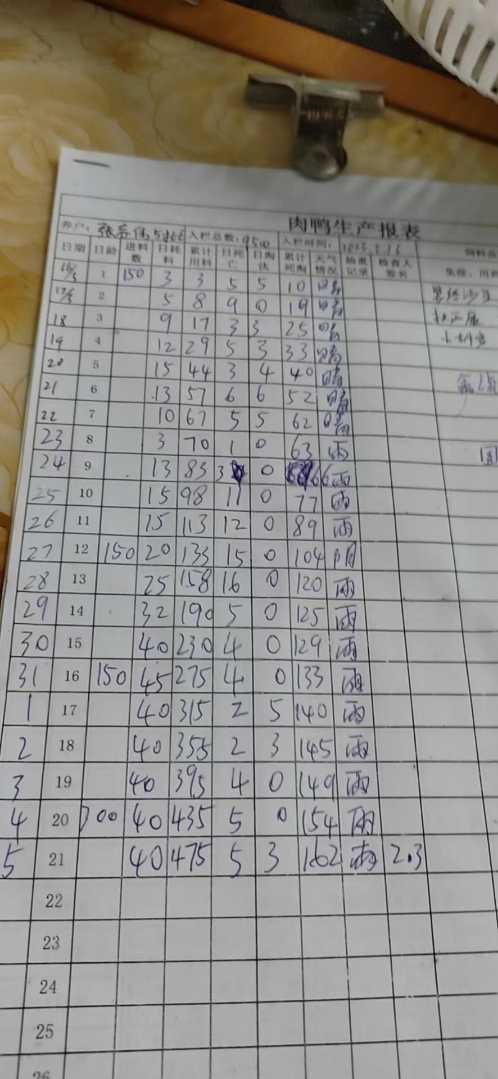 肉鸭生产报表
养户: 入栏总数: 9500 入栏时间:
日期 日龄 进料数 日耗料 累计用料 日死亡 日淘汰 累计死淘 天气情况 抽重记录 检查人签名
16/5 1 150 3 3 5 5 10 晴
17/5 2 5 8 9 0 19 晴
18 3 9 17 3 3 25 晴
19 4 12 29 5 3 33 晴
20 5 15 44 3 4 40 晴
21 6 13 57 6 6 52 晴
22 7 10 67 5 5 62 晴
23 8 3 70 1 0 63 雨
24 9 13 83 3 0 66 雨
25 10 15 98 11 0 77 雨
26 11 15 113 12 0 89 雨
27 12 150 20 133 15 0 104 阴
28 13 25 158 16 0 120 雨
29 14 32 190 5 0 125 雨
30 15 40 230 4 0 129 雨
31 16 150 45 275 4 0 133 雨
1 17 40 315 2 5 140 雨
2 18 40 355 2 3 145 雨
3 19 40 395 4 0 149 雨
4 20 200 40 435 5 0 154 雨
5 21 40 475 5 3 162 雨 2.3
22
23
24
25
26